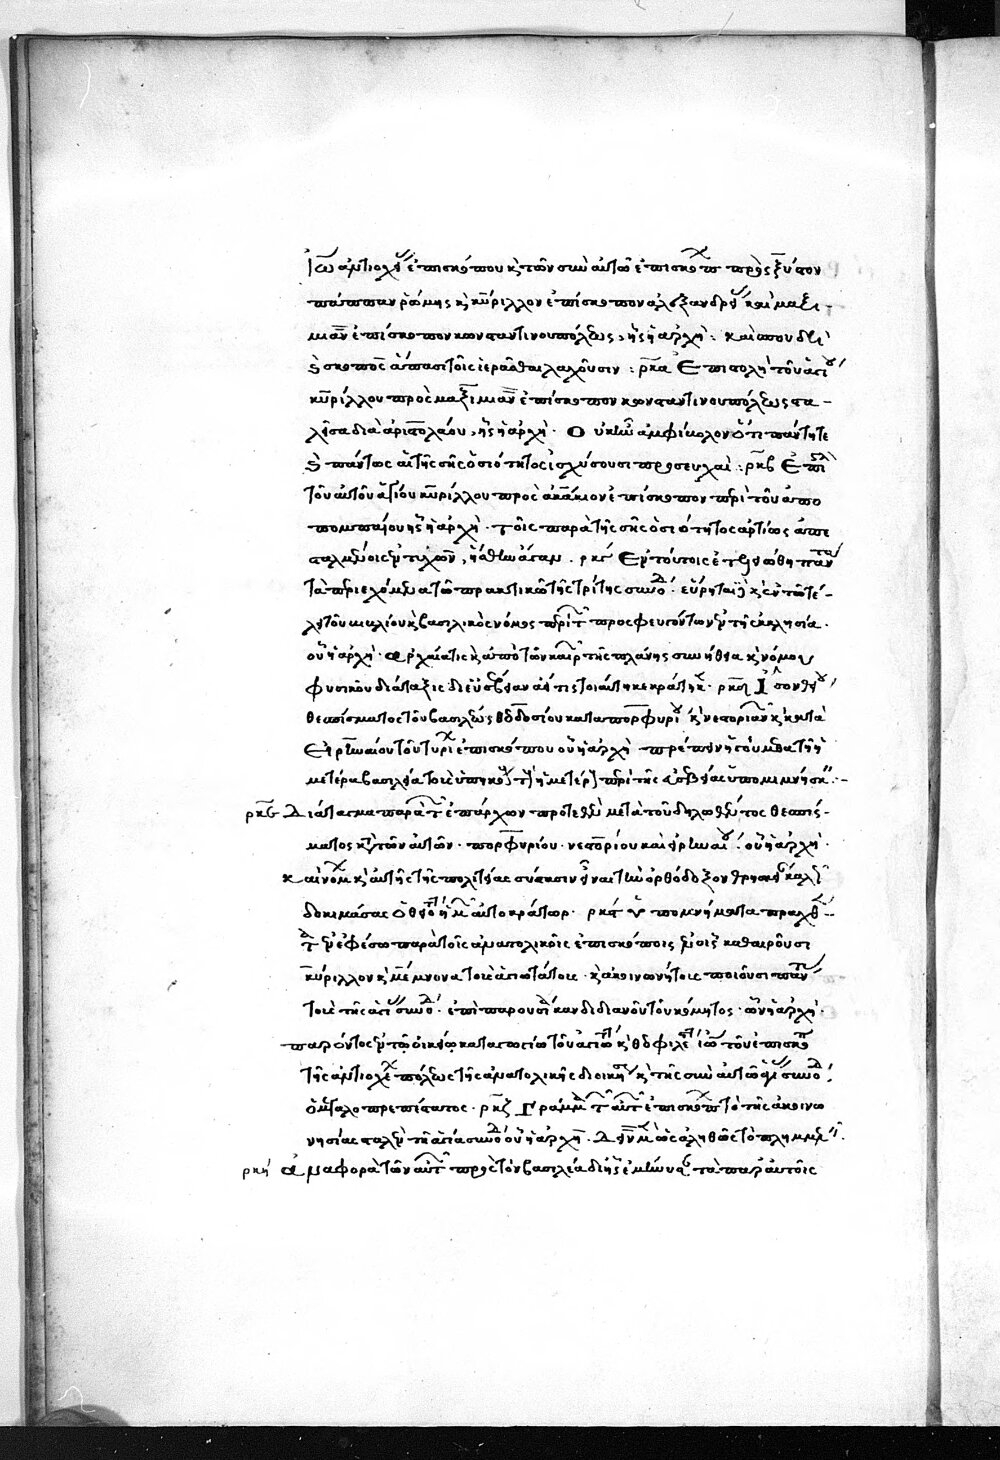 Ἰω ἀντιοχείας ἐπισκόπου κ τῶν σὺν αὐτῶ ἐπισκόπ πρὸς ξύστον
πάππαν ῥώμης κ κύριλλον ἐπίσκοπον ἀλεξανδρεί καὶ μαξι-
μιαν ἐπίσκοπον κωνσταντινουπόλεως, ἧς ἡ ἀρχή· καὶ σπουδὴ
σκοπὸς ἅπασι τοῖς ἱερᾶσθαι λαχοῦσιν : ρκα Ἐπιστολὴ τοῦ ἁγί
κυρίλλου πρὸς μαξιμιαν ἐπίσκοπον κωνσταντινουπόλεως στα-
λεῖσα διὰ ἀριστολάου, ἧς ἡ ἀρχή· Οὐκ ἦν ἀμφίβολον ὅτι πάντῃ τε
πάντως αἱ τῆς σῆς ὁσιότητος ἰσχύσουσι προσευχαί : ρκβ Ἐπιστολ
τοῦ αὐτοῦ ἁγίου κυρίλλου πρὸς ἀκάκιον ἐπίσκοπον περὶ τοῦ ἀπο
πομπαίου ἧς ἡ ἀρχή· τοῖς παρὰ τῆς σῆς ὁσιότητος ἀρτίως ἀπε
σταλμένοις ἐντυχὼν, ἥσθην ἄγαν. ρκγ Ἐν τούτοις ἐτελειώθη πάντα
τὰ περιεχόμενα τῶ πρακτικῶ τῆς τρίτης συνόδ : εὕρηται κ ἐν τῶ τέ-
λει τοῦ βιβλίου κ βασιλικὸς νόμος περὶ τ προσφευγόντων ἐν τῆ ἐκκλησία.
οὗ ἡ ἀρχή· ἀρχαία τις κ ἀπὸ τῶν καιρ τῆς πλάνης συνήθεια κ νόμου
φυσικοῦ διάταξις δι' εὐσέβειαν τοιαύτη κεκράτηκ. ρκδ Ἴσον θεί
θεσπίσματος τοῦ βασιλέως θεοδοσίου κατὰ πορφυρί κ νεστοριαν κ κατὰ
Εἰρηναίου τοῦ τυρί ἐπισκόπου οὗ ἡ ἀρχή πρέπειν ἡγούμεθα τῆ ἡ
μετέρα βασιλεία τοὺς ὑπηκό τ ἡμετέρ περὶ τῆς εὐσεβείας ὑπομιμνήσκ.-
ρκε Διάταγμα παρὰ τ ἐπάρχων προτεθὲν μετὰ τοῦ δηλωθέντος θεσπίσ-
ματος κ τῶν αὐτῶν· πορφυρίου· νεστορίου καὶ εἰρηναί. οὗ ἡ ἀρχή.
καινομ κ αὐτῆς τῆς πολιτείας σύστασιν εἶναι τὴν ὀρθόδοξον θρησκεί καλ
δοκιμάσας ὁ θειό ἡμ αὐτοκράτωρ. ρκς Ὑπομνήματα πραχθ-
τ ἐν ἐφέσω παρὰ τοῖς ἀνατολικοῖς ἐπισκόποις ἐν οἷς καθαιροῦσι
κύριλλον κ μέμνονα τοὺς ἁγιωτάτους. κ ἀκοινωνήτους ποιοῦσι πάντ
τοὺς τῆς ἁγί συνόδ. ἐπὶ παρουσί κανδιδιανοῦ τοῦ κόμητος. ὧν ἡ ἀρχή.
παρόντος ἐν τῶ οἰκείω καταγωγίω τοῦ ἁγιω κ θεοφιλε ἰω τοῦ ἐπισκό
τῆς ἀντιοχέ πόλεως τῆς ἀνατολικῆς διοική κ τῆς σὺν αὐτῶ ἁγί συνόδ :
ὁ μεγαλοπρεπέστατος. ρκζ Γράμμ τ αὐτ ἐπισκόπ τὸ τῆς ἀκοινω
νησίας σταλὲν τῆ ἁγία συνόδ οὗ ἡ ἀρχή. Δειν μ ὡς ἀληθῶς τὸ πλημμελ.
ρκη Ἀναφορὰ τῶν αὐτ πρὸς τὸν βασιλέα δι' ἧς ἐμήνυσ τὰ παρ' αὐτοῖς